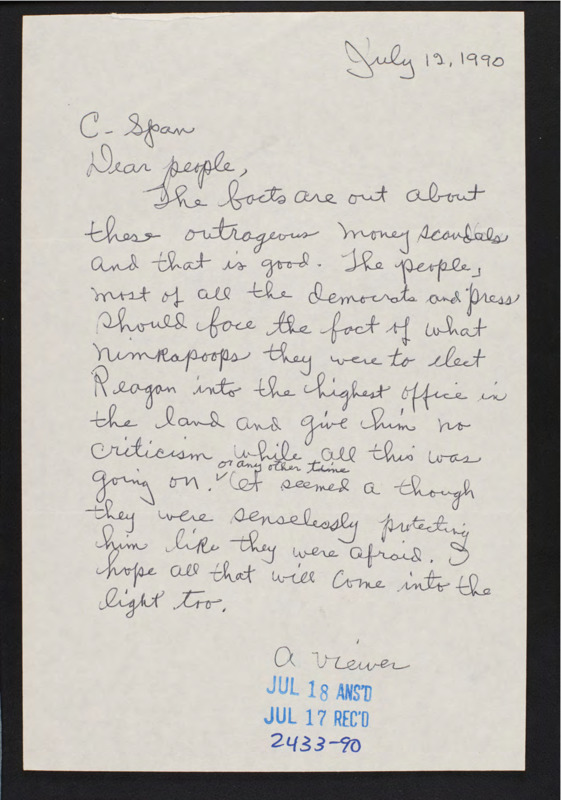 July 12, 1990
C-Span
Dear people,
The facts are out about
these outrageous money scandals
and that is good. The people,
most of all the democrats and press
should face the fact of what
nimkapoops they were to elect
Reagan into the highest office in
the land and give him no
criticism while all this was
or any other time
going on. It seemed a though
they were senselessly protecting
him like they were afraid. I
hope all that will come into the
light too.
A viewer
JUL 18 ANS'D
JUL 17 REC'D
2433-90